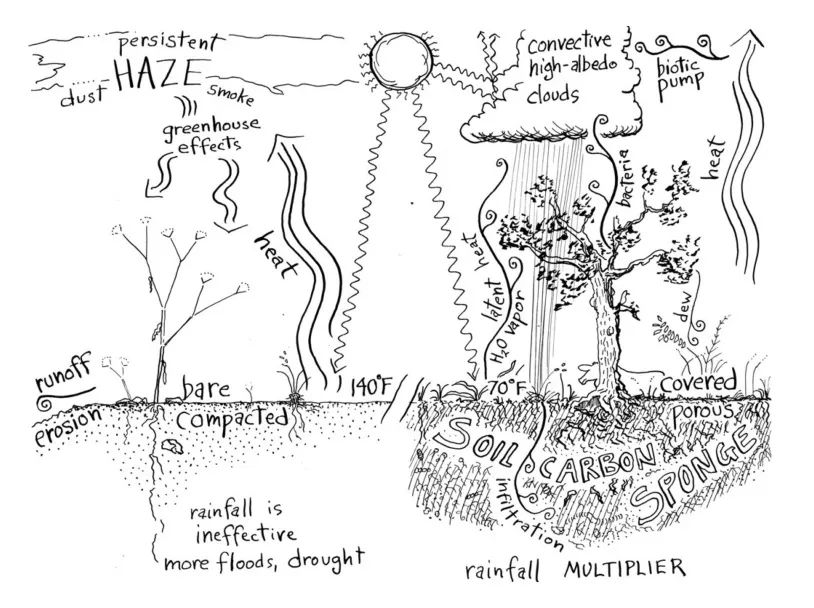 persistent
HAZE
dust
smoke
greenhouse
effects
heat
runoff
erosion
bare
compacted
140°F
rainfall is
ineffective
more floods, drought
convective
high-albedo
clouds
biotic
pump
heat
bacteria
latent heat
H2O vapor
dew
70°F
covered
porous
SOIL CARBON SPONGE
infiltration
rainfall MULTIPLIER